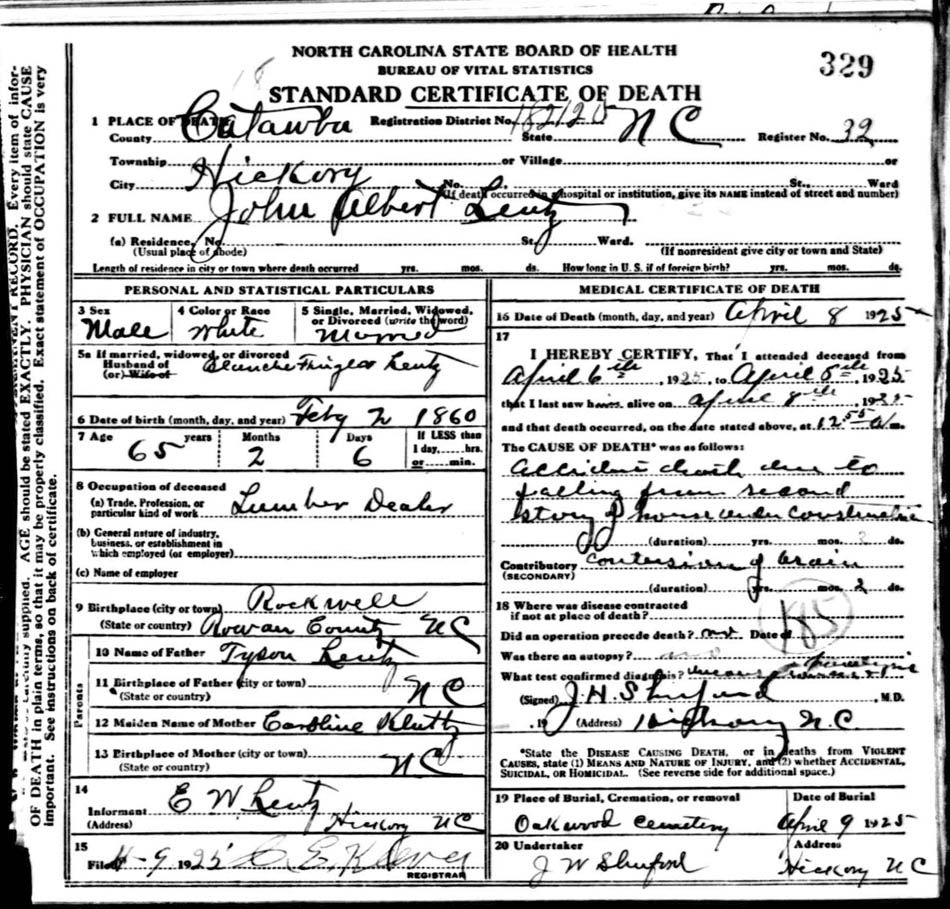 NORTH CAROLINA STATE BOARD OF HEALTH
BUREAU OF VITAL STATISTICS
329
STANDARD CERTIFICATE OF DEATH
1 PLACE OF DEATH Registration District No. 182120
County Catawba State N C Register No. 32
Township or Village or
City Hickory No. St., Ward
(If death occurred in a hospital or institution, give its NAME instead of street and number)
2 FULL NAME John Albert Lentz
(a) Residence, No. St. Ward.
(Usual place of abode) (If nonresident give city or town and State)
Length of residence in city or town where death occurred yrs. mos. ds. How long in U. S. if of foreign birth? yrs. mos. ds.
PERSONAL AND STATISTICAL PARTICULARS
3 Sex 4 Color or Race 5 Single, Married, Widowed, or Divorced (write the word)
Male White Married
5a If married, widowed, or divorced
Husband of
(or) Wife of
Blanche Lentz
6 Date of birth (month, day, and year) Feby 2 1860
7 Age years Months Days If LESS than
1 day, hrs.
or min.
65 2 6
8 Occupation of deceased
(a) Trade, Profession, or
particular kind of work Lumber Dealer
(b) General nature of industry,
business, or establishment in
which employed (or employer)
(c) Name of employer
9 Birthplace (city or town) Rockwell
(State or country) Rowan County NC
Parents
10 Name of Father Tyson Lentz
11 Birthplace of Father (city or town)
(State or country) NC
12 Maiden Name of Mother Caroline Kluttz
13 Birthplace of Mother (city or town)
(State or country) NC
14
Informant E W Lentz
(Address) Hickory NC
15
Filed 4-9 1925
REGISTRAR
MEDICAL CERTIFICATE OF DEATH
16 Date of Death (month, day, and year) April 8 1925
17
I HEREBY CERTIFY, That I attended deceased from
April 6th, 1925, to April 8th, 1925
that I last saw him alive on April 8th, 1925
and that death occurred, on the date stated above, at 12 55 m.
The CAUSE OF DEATH* was as follows:
accident death due to
falling from second
story of house under construction
(duration) yrs. mos. 2 ds.
Contributory contusion of brain
(SECONDARY)
(duration) yrs. mos. 2 ds.
18 Where was disease contracted
if not at place of death?
185
Did an operation precede death? not Date of
Was there an autopsy? no
What test confirmed diagnosis?
(Signed) J. H. Shuford M.D.
, 19 (Address) Hickory N.C.
*State the DISEASE CAUSING DEATH, or in deaths from VIOLENT
CAUSES, state (1) MEANS AND NATURE OF INJURY, and (2) whether ACCIDENTAL,
SUICIDAL, OR HOMICIDAL. (See reverse side for additional space.)
19 Place of Burial, Cremation, or removal Date of Burial
Oakwood Cemetery April 9 1925
20 Undertaker Address
J W Shuford Hickory NC
RECORD. Every item of infor-
supplied. AGE should be stated EXACTLY. PHYSICIAN should state CAUSE
OF DEATH in plain terms, so that it may be properly classified. Exact statement of OCCUPATION is very
important. See instructions on back of certificate.